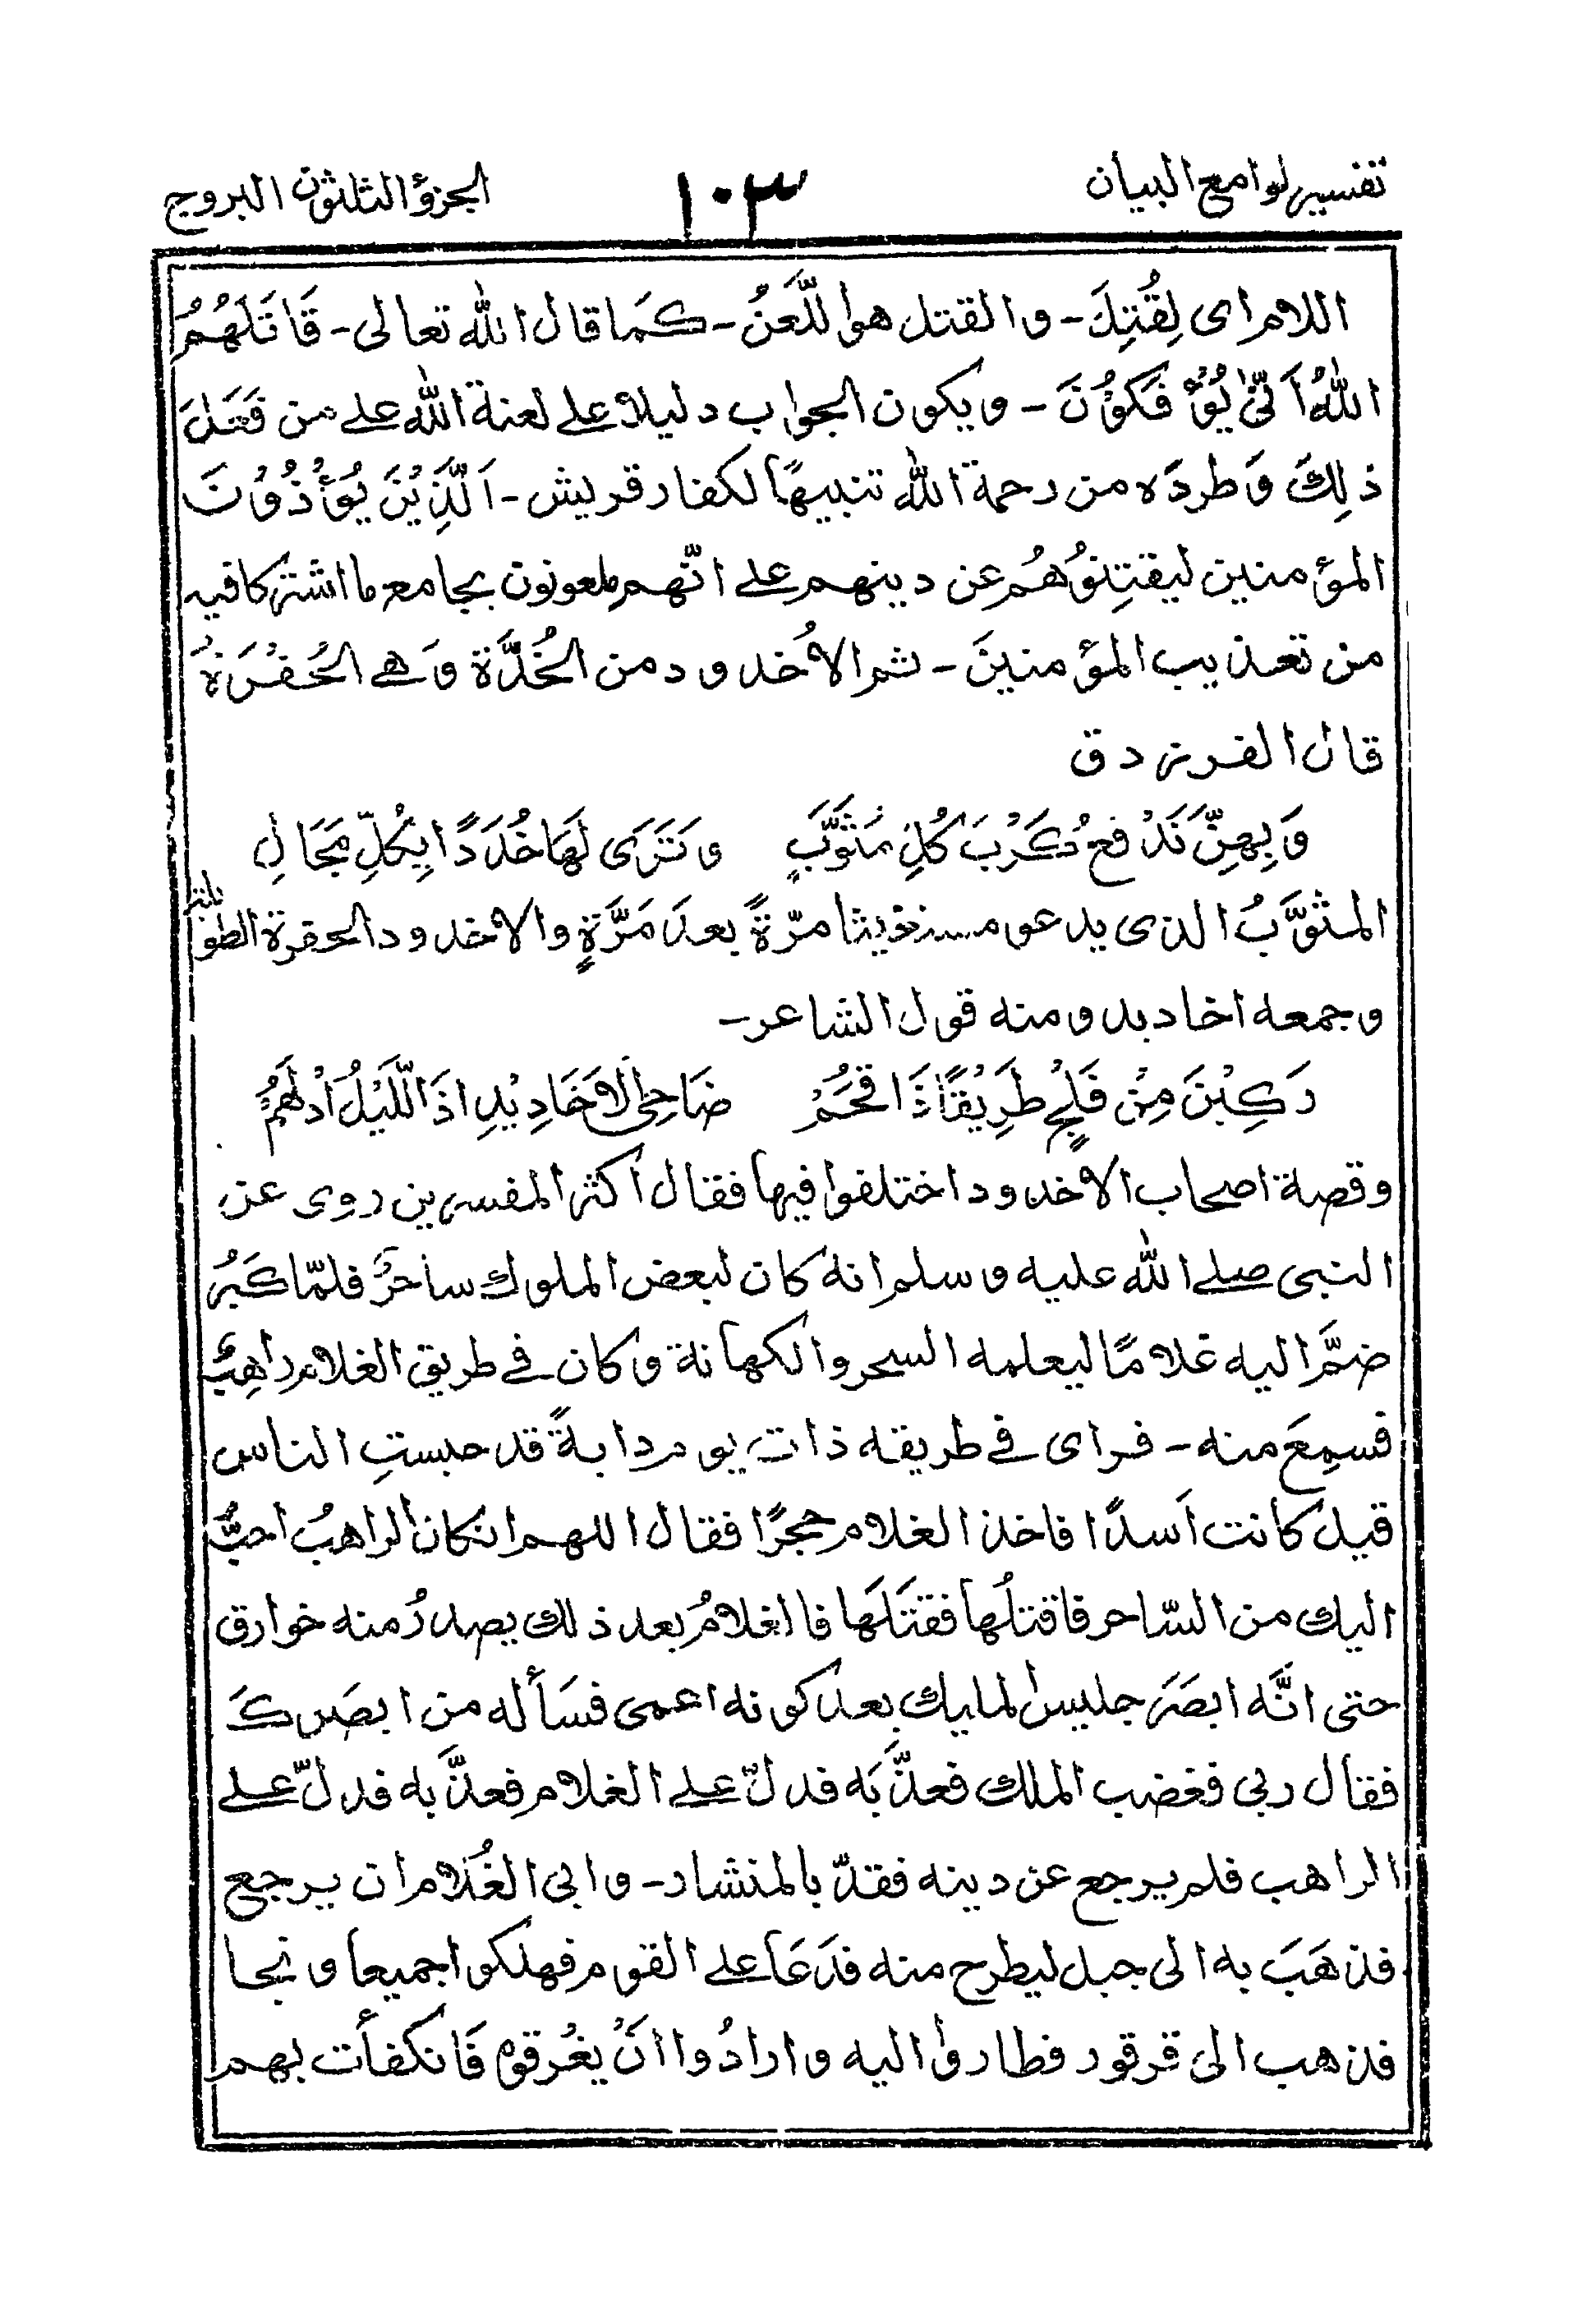 تفسير لوامع البيان
١٠٣
الجزؤ الثلثون البروج
اللام اى لِقُتِلَ - والقتل هو اللَّعَنُ - كمَا قال الله تعالى - قَاتَلَهُمُ
اللهُ اَنّىٰ يُؤْفَكُوْنَ - ويكون الجواب دليلا على لعنة الله على من فَعَلَ
ذٰلِكَ وَطردَه من رحمة الله تنبيهًا لكفار قريش - اَلَّذِيْنَ يُؤْذُوْنَ
المؤمنين ليفتِنوُهُم عن دينهم على انّهم ملعونون بجامع ما اشتركا فيه
من تعذيب المؤمنينَ - ثم الاُخدود من الخُدَّة وَهى الحُفْرَةُ
قال الفرزدق
وَبِهِنَّ نَدْفعُ كَرْبَ كُلِّ مُثَوَّبٍ وتَرَى لَهَا خُدَدًا بِكُلِّ مَجَالِ
المثوَّبُ الذى يدعو مستغيثا مرّةً بعدَ مَرَّةٍ والاخدود الحفرة الطو
وجمعه اخاديد ومنه قول الشاعر -
رَكِبْنَ مِنْ فَلْجٍ طَرِيْقًا ذَا قحُمْ ضَاحِى الاَخَادِيْدِ اذَا اللَّيْلُ ادْلَهَمّْ
وقصة اصحاب الاخدود اختلفوا فيها فقال أكثر المفسرين روى عن
النبى صلے الله عليه وسلم انهُ كان لبعض الملوك ساحرٌ فلمّا كَبُر
ضمَّ اليه غلامًا ليعلمه السحر والكهانة وكان فى طريق الغلام راهِبٌ
فسمِعَ منه - فراى فى طريقه ذات يوم دابةً قد حبستِ الناس
قيل كانت اَسدًا فاخذ الغلام حجرًا فقال اللهم ان كان الراهبُ احبُّ
اليك من السّاحر فاقتلُها فقتَلَها فالغلامُ بعد ذلك يصدرُ منه خوارق
حتى انَّه ابصَرَ جليس المليك بعد كونه اعمى فسَأله من ابصَرك
فقال ربى فغضب الملك فعذّبَه فدلّ على الغلام فعذَّبه فدلّ على
الراهب فلم يرجع عن دينه فقدّ بالمنشار - وابى الغُلام ان يرجع
فذهَبَ به الى جبل ليطرح منه فدَعَا على القوم فهلكوا جميعا ونجا
فذهب الى قرقور فطاروا اليه وارادُوا انْ يغْرقوه فَانكفأت بهم